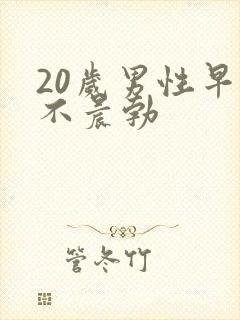 20岁男性早
不晨勃
管冬竹